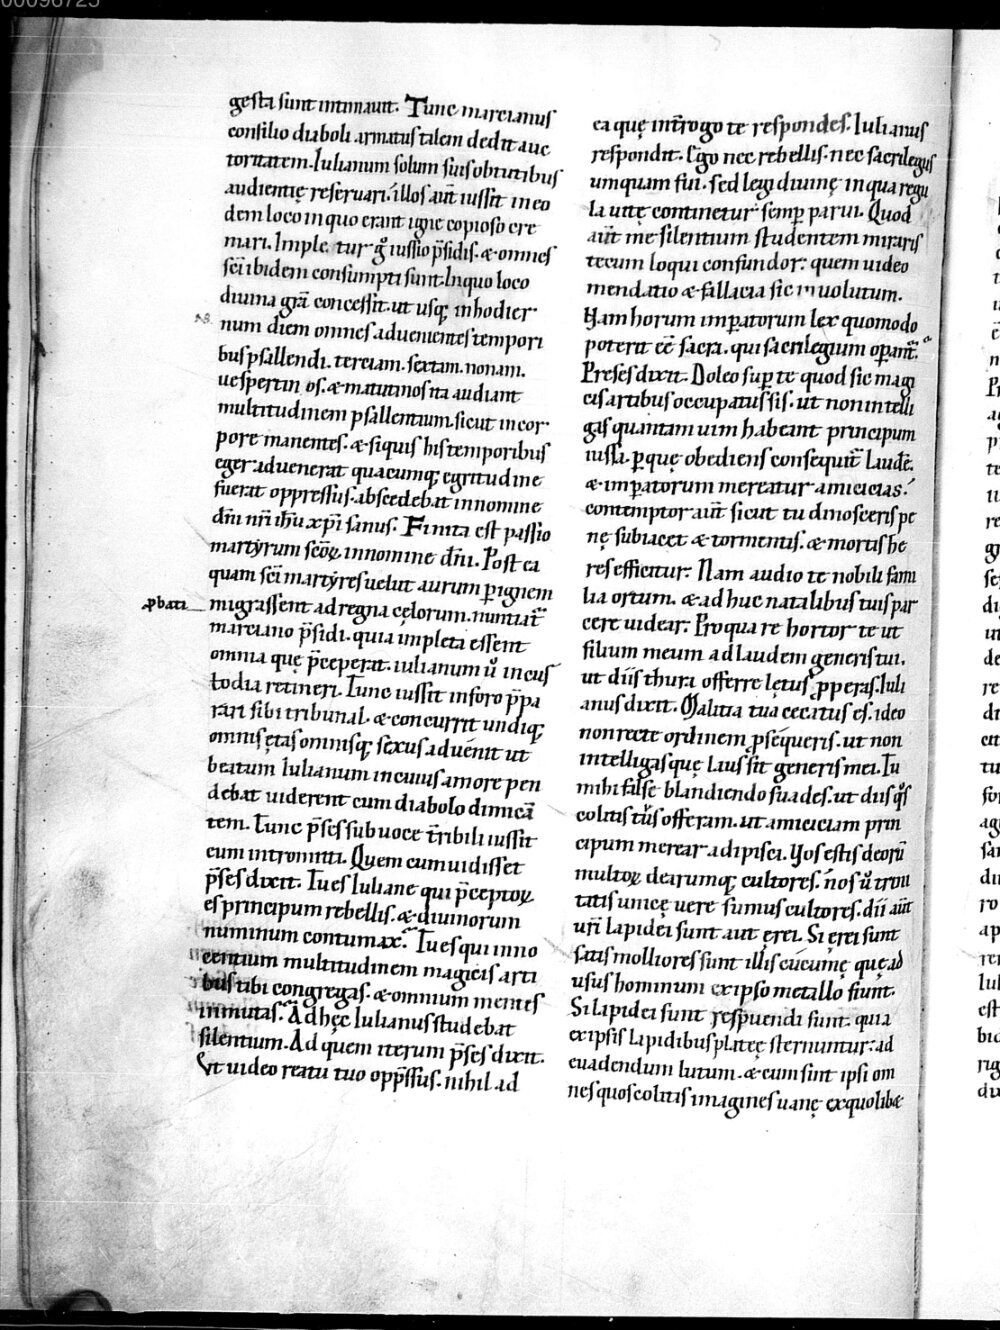 00098725
gesta sunt intimauit. Tunc marcianus
consilio diaboli armatus talem dedit auc
toritatem. Iulianum solum suis obtutibus
audientię reseruari. illos aut̄ iussit in eo
dem loco in quo erant igne copioso cre
mari. Imple tur g̊ iussio p̄sidis. & omnes
sc̄i ibidem consumpti sunt. In quo loco
diuina gr̄a concessit. ut usq; in hodier
num diem omnes aduenientes tempori
bus psallendi. terciam. sextam. nonam.
uespertin os. & matutinos ita audiant
multitudinem psallentium. sicut in cor
pore manentes. & siquis his temporibus
eger aduenerat quacumq; egritudine
fuerat oppressus. abscedebat in nomine
dn̄i nr̄i ih̄u xp̄i sanus. Finita est passio
martyrum sc̄oꝝ in nomine dn̄i. Post ea
quam sc̄i martyres uelut aurum ꝑ ignem
ꝓbati
migrassent ad regna cęlorum. nuntiat᷑
marciano p̄sidi. quia impleta essent
omnia quę p̄ceperat. iulianum ů in cus
todia retineri. Tunc iussit in foro p̄pa
rari sibi tribunal. & concurrit undiq;
omnis ętas omnisq; sexus aduenit ut
beatum Iulianum in cuius amore pen
debat uiderent cum diabolo dimicā
tem. Tunc p̄ses sub uoce t̄ribili iussit
eum intromitti. Quem cum uidisset
p̄ses dixit. Tu es Iuliane qui p̄ceptoꝝ
es principum rebellis. & diuinorum
numinum contumax. Tu es qui inno
centium multitudinem magicis arti
bus tibi congregas. & omnium mentes
inmutas. Ad hęc Iulianus studebat
silentium. Ad quem iterum p̄ses dixit.
Vt uideo reatu tuo opp̄ssus. nihil ad
ea quę int̄rogo te respondes. Iulianus
respondit. Ego nec rebellis. nec sacrilegus
umquam fui. sed legi diuinę in qua regu
la uitę continetur semꝑ parui. Quod
aut̄ me silentium studentem miraris
tecum loqui confundor: quem uideo
mendatio & fallacia sic inuolutum.
Nam horum imꝑatorum lex quomodo
poterit eē sacra. qui sacrilegium oꝑant᷑.
Preses dixit. Doleo suꝑ te quod sic magi
cis artibus occupatus sis. ut non intelli
gas quantam uim habeant principum
iussa. ꝑ quę obediens consequit᷑ laudē.
& imꝑatorum mereatur amicicias.
contemptor aut̄ sicut tu dinosceris pe
nę subiacet & tormentis. & mortis he
res efficitur. Nam audio te nobili fami
lia ortum. & ad huc natalibus tuis par
cere uidear. Pro qua re hortor te ut
filium meum ad laudem generis tui.
ut diis thura offerre lętus ꝓperas. Iuli
anus dixit. Malitia tua cecatus es. ideo
non recte ordinem ꝓsequeris. ut non
intelligas quę laus sit generis mei. Tu
mihi false blandiendo suades. ut diis q̊s
colitis tus offeram. ut amiciciam prin
cipum merear adipisci. Vos estis deorū
multoꝝ dearumq; cultores. nos ů trini
tatis unicę uere sumus cultores. dii aut̄
uri lapidei sunt aut ęrei. Si ęrei sunt
satis molliores sunt illis cucumę quę ad
usus hominum ex ipso metallo fiunt.
Si lapidei sunt respuendi sunt. quia
ex ipsis lapidibus plateę sternuntur: ad
euadendum lutum. & cum sint ipsi om
nes quos colitis imagines uanę ex quolib&